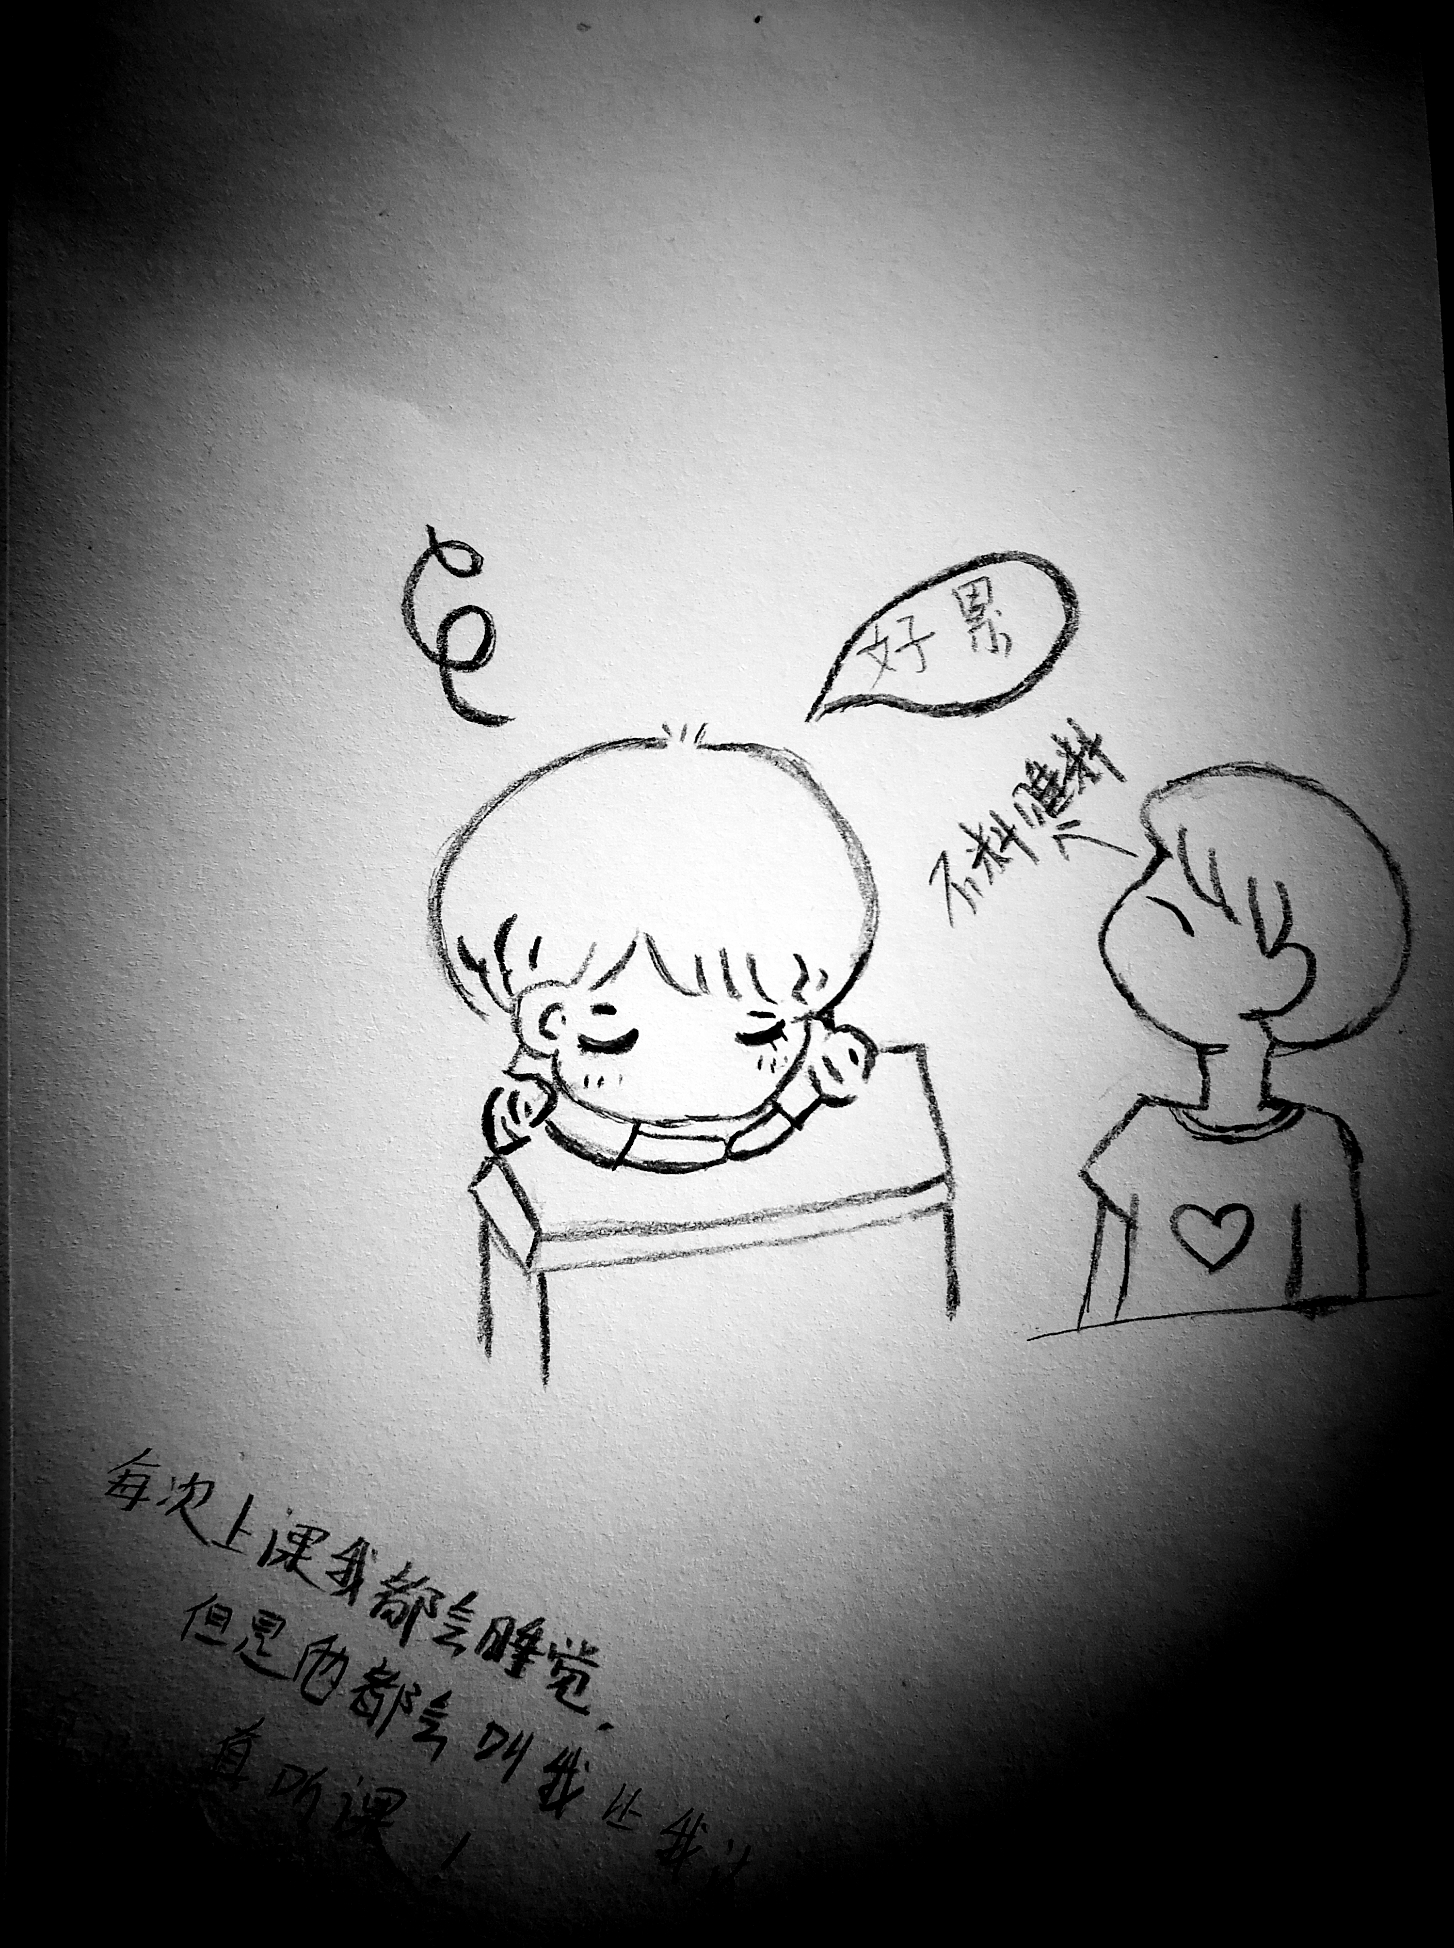 好累
每次上课我都会睡觉，
但是都会叫我让我认
真听课，